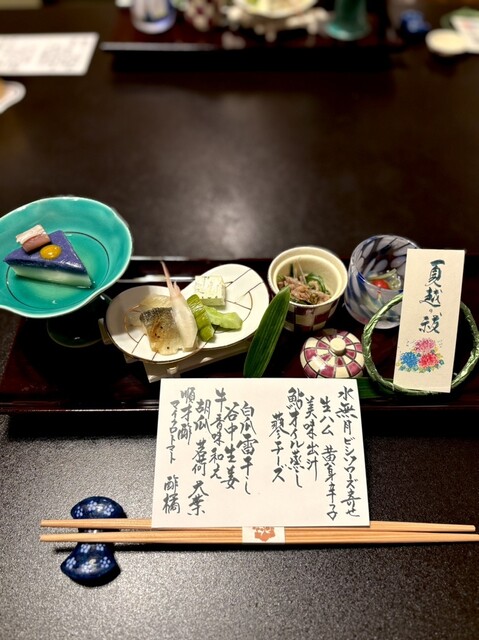 夏越の祓
水無月ビシソワーズ寄せ
生ハム 黄身辛子
美味出汁
鮎オイル蒸し
蓼チーズ
白瓜雷干し
谷中生姜
牛香味和え
胡瓜 茗荷 大葉
順才酢
マイクロトマト 酢橘